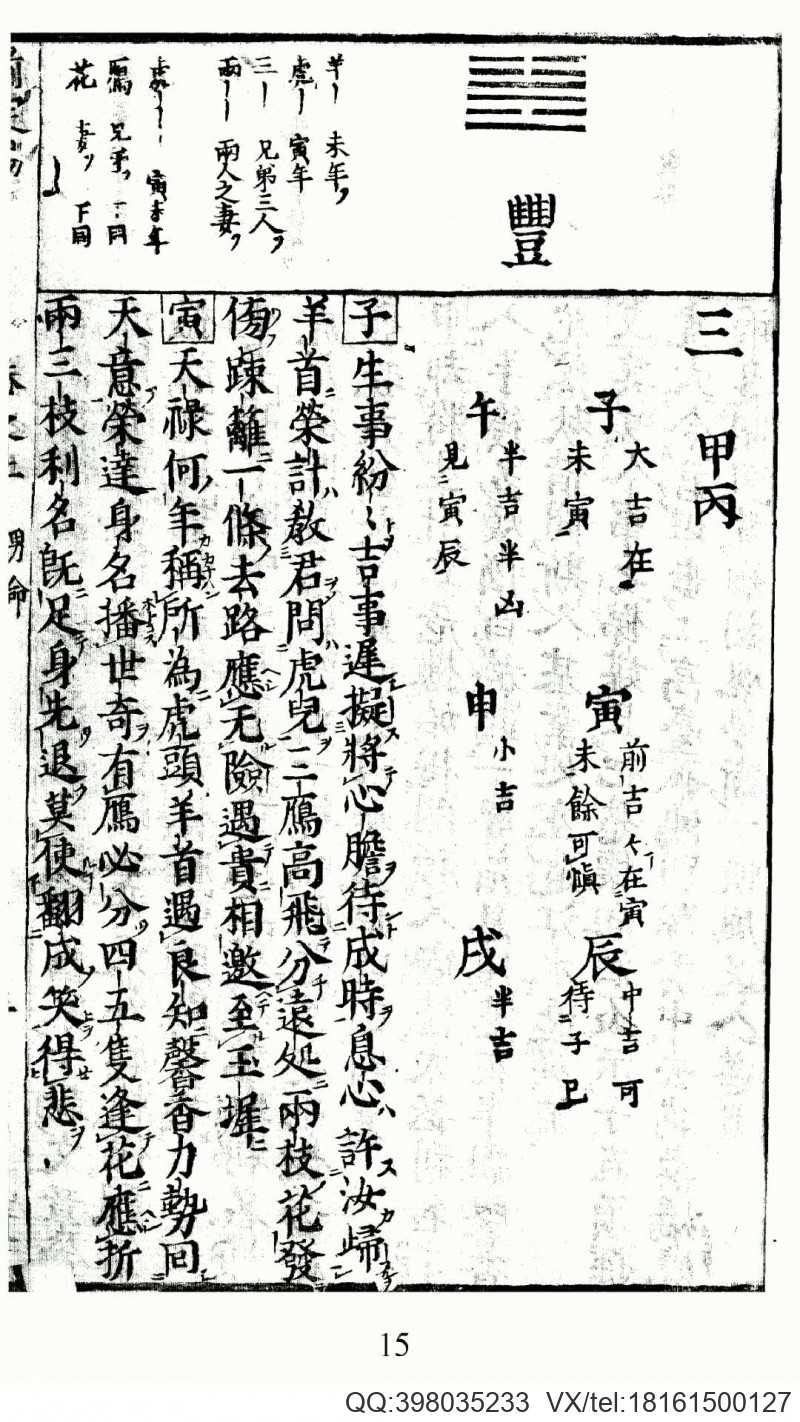 豐
羊｜　未年ﾉ
虎｜　寅年
三｜　兄弟三人ﾉ
兩｜｜　兩人之妻ﾉ
寅未年
鴈　兄弟ﾉ
花　妻ﾉ　下同
三　甲丙
子　大吉在未寅
寅　前吉々在寅未餘可慎
辰　中吉可待子巳
午　半吉半凶見寅辰
申　小吉
戌　半吉
子生事紛〻吉事遲擬將心膽待成時息心許汝歸
羊首榮計教君問虎兒三鴈高飛分遠処兩枝花發
傷踈離一條去路應无險遇貴相邀至玉墀
寅天祿何年稱所為虎頭羊首遇良知馨香力勢回
天意榮達身名播世奇有鴈必分四五隻逢花應折
兩三枝利名既足身先退莫使翻成笑得悲
男命
15
QQ:398035233 VX/tel:18161500127